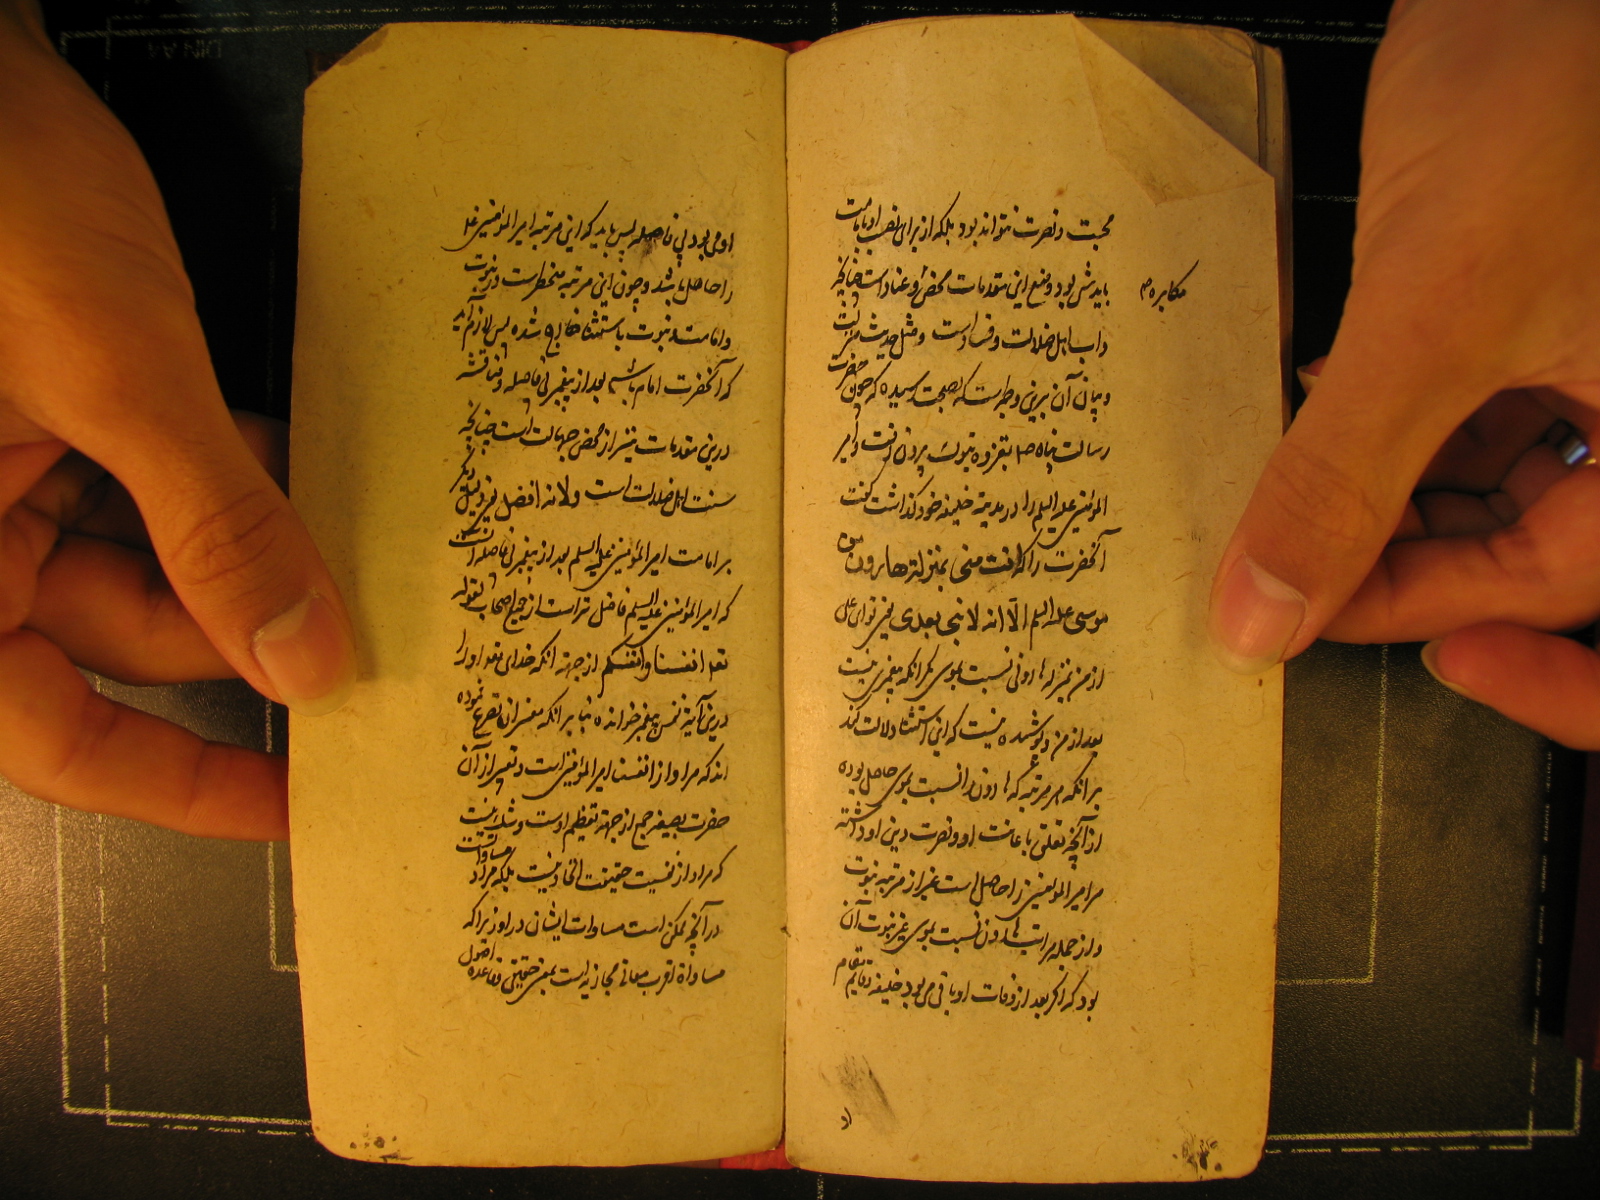 محبت و نصرت نتواند بود بلکه از برای نصب او بامامت
بایدش بود و منع این مقدمات محض و عناد است چنانچه
مکابره
داب اهل ضلالت و فساد است و مثل حدیث منزلت
و بیان آن برین وجه است که بصحت رسیده که چون حضرت
رسالت پناه بغزوه تبوک بیرون رفت و امیر
المؤمنین علیه السلم را در مدینه خلیفه خود گذاشت گفت
آنحضرت را که انت منی بمنزلة هارون من
موسی علیه السلم الا انه لا نبی بعدی یعنی تو ای علی
از من بمنزله هارونی نسبت بموسی مگر آنکه پیغمبری نیست
بعد از من و پوشیده نیست که این استثنا دلالت کند
بر آنکه هر مرتبه که هارون را نسبت بموسی حاصل بوده
از آنچه تعلق باعانت او و نصرت دین او داشته
مر امیر المؤمنین را حاصل است غیر از مرتبه نبوت
و از جمله مراتب هارون نسبت بموسی غیر نبوت آن
بود که اگر بعد از وفات او باقی می بود خلیفه و قایم مقام
او
او می بود بی فاصله پس باید که این مرتبه امیر المؤمنین علی
را حاصل باشد و چون این مرتبه منحصر است در نبوت
و امامت و نبوت باستثنا خارج شده پس لازم آید
که آنحضرت امام باشد بعد از پیغمبر بی فاصله و مناقشه
درین مقدمات نیز از محض جهالت است چنانچه
سنت اهل ضلالت است و لانه افضل یعنی دلیل دیگر
بر امامت امیر المؤمنین علیه السلم بعد از پیغمبر بی فاصله آنست
که امیر المؤمنین علیه السلم فاضل تر است از جمیع اصحاب لقوله
تعا انفسنا و انفسکم از جهة آنکه خدای تعا او را
درین آیة نفس پیغمبر خوانده بنا بر آنکه مفسران تصریح نموده
اند که مراد از انفسنا امیر المؤمنین است و تعبیر از آن
حضرت بصیغه جمع از جهة تعظیم اوست و شک نیست
که مراد از نفسیت حقیقت اتحاد نیست بلکه مراد مساواتست
در آنچه ممکن است مساوات ایشان در او زیرا که
مساواة اقرب معانی مجازیه است بمعنی حقیقی و قاعده اصول